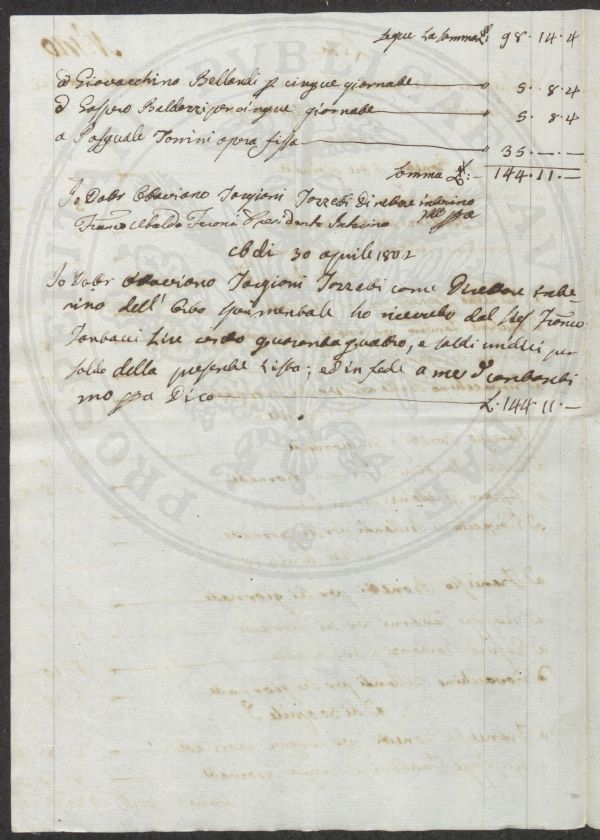 Segue La Somma L. 98. 14. 4
a Giovacchino Bellandi p. cinque giornate " 5. 8. 4
a Gaspero Baldozzi per cinque giornate " 5. 8. 4
a Pasquale Tonini opera fissa " 35. — . —
Somma L. 144. 11. —
Io Dottr Ottaviano Targioni Tozzetti Direttore interino
Franco Ubaldo Feroni Presidente Interino
a di 30 aprile 1802
Io Dottr Ottaviano Targioni Tozzetti come Direttore inte-
rino dell' Orto Sperimentale ho ricevuto dal Sig Franco
Lire cento quaranta quattro, e soldi undici per
saldo della presente Lista; ed in fede a me contanti
mo ppa Dico L. 144. 11. —